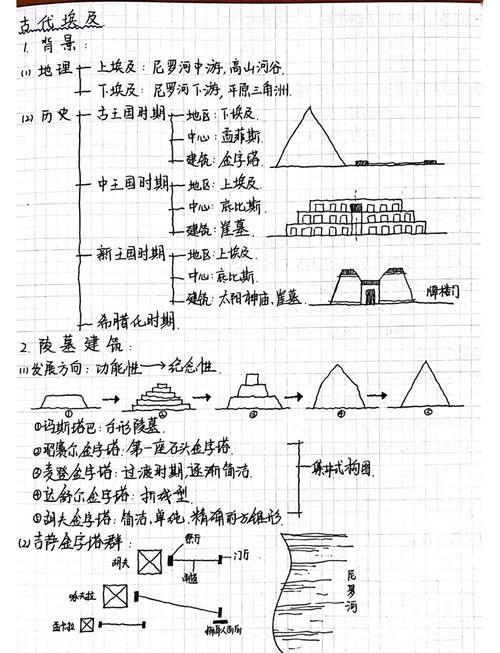 古代埃及
1. 背景:
(1) 地理 上埃及: 尼罗河中游, 高山河谷.
下埃及: 尼罗河下游, 平原三角洲.
(2) 历史 古王国时期 地区: 下埃及.
中心: 孟菲斯.
建筑: 金字塔.
中王国时期 地区: 上埃及.
中心: 底比斯.
建筑: 崖墓.
新王国时期 地区: 上埃及.
中心: 底比斯.
建筑: 太阳神庙, 崖墓. 牌楼门
希腊化时期.
2. 陵墓建筑:
(1) 发展方向: 功能性→纪念性.
① ② ③ ④ ⑤
①玛斯塔巴: 台形陵墓.
②昭赛尔金字塔: 第一座石头金字塔.
③麦登金字塔: 过渡时期, 逐渐简洁. 集中式构图.
④达舒尔金字塔: 折线型.
⑤胡夫金字塔: 简洁, 单纯, 精确的方锥形.
(2) 吉萨金字塔群: 祭厅
胡夫 门厅
甬道
哈夫拉 尼罗河
狮身人面像
孟卡拉